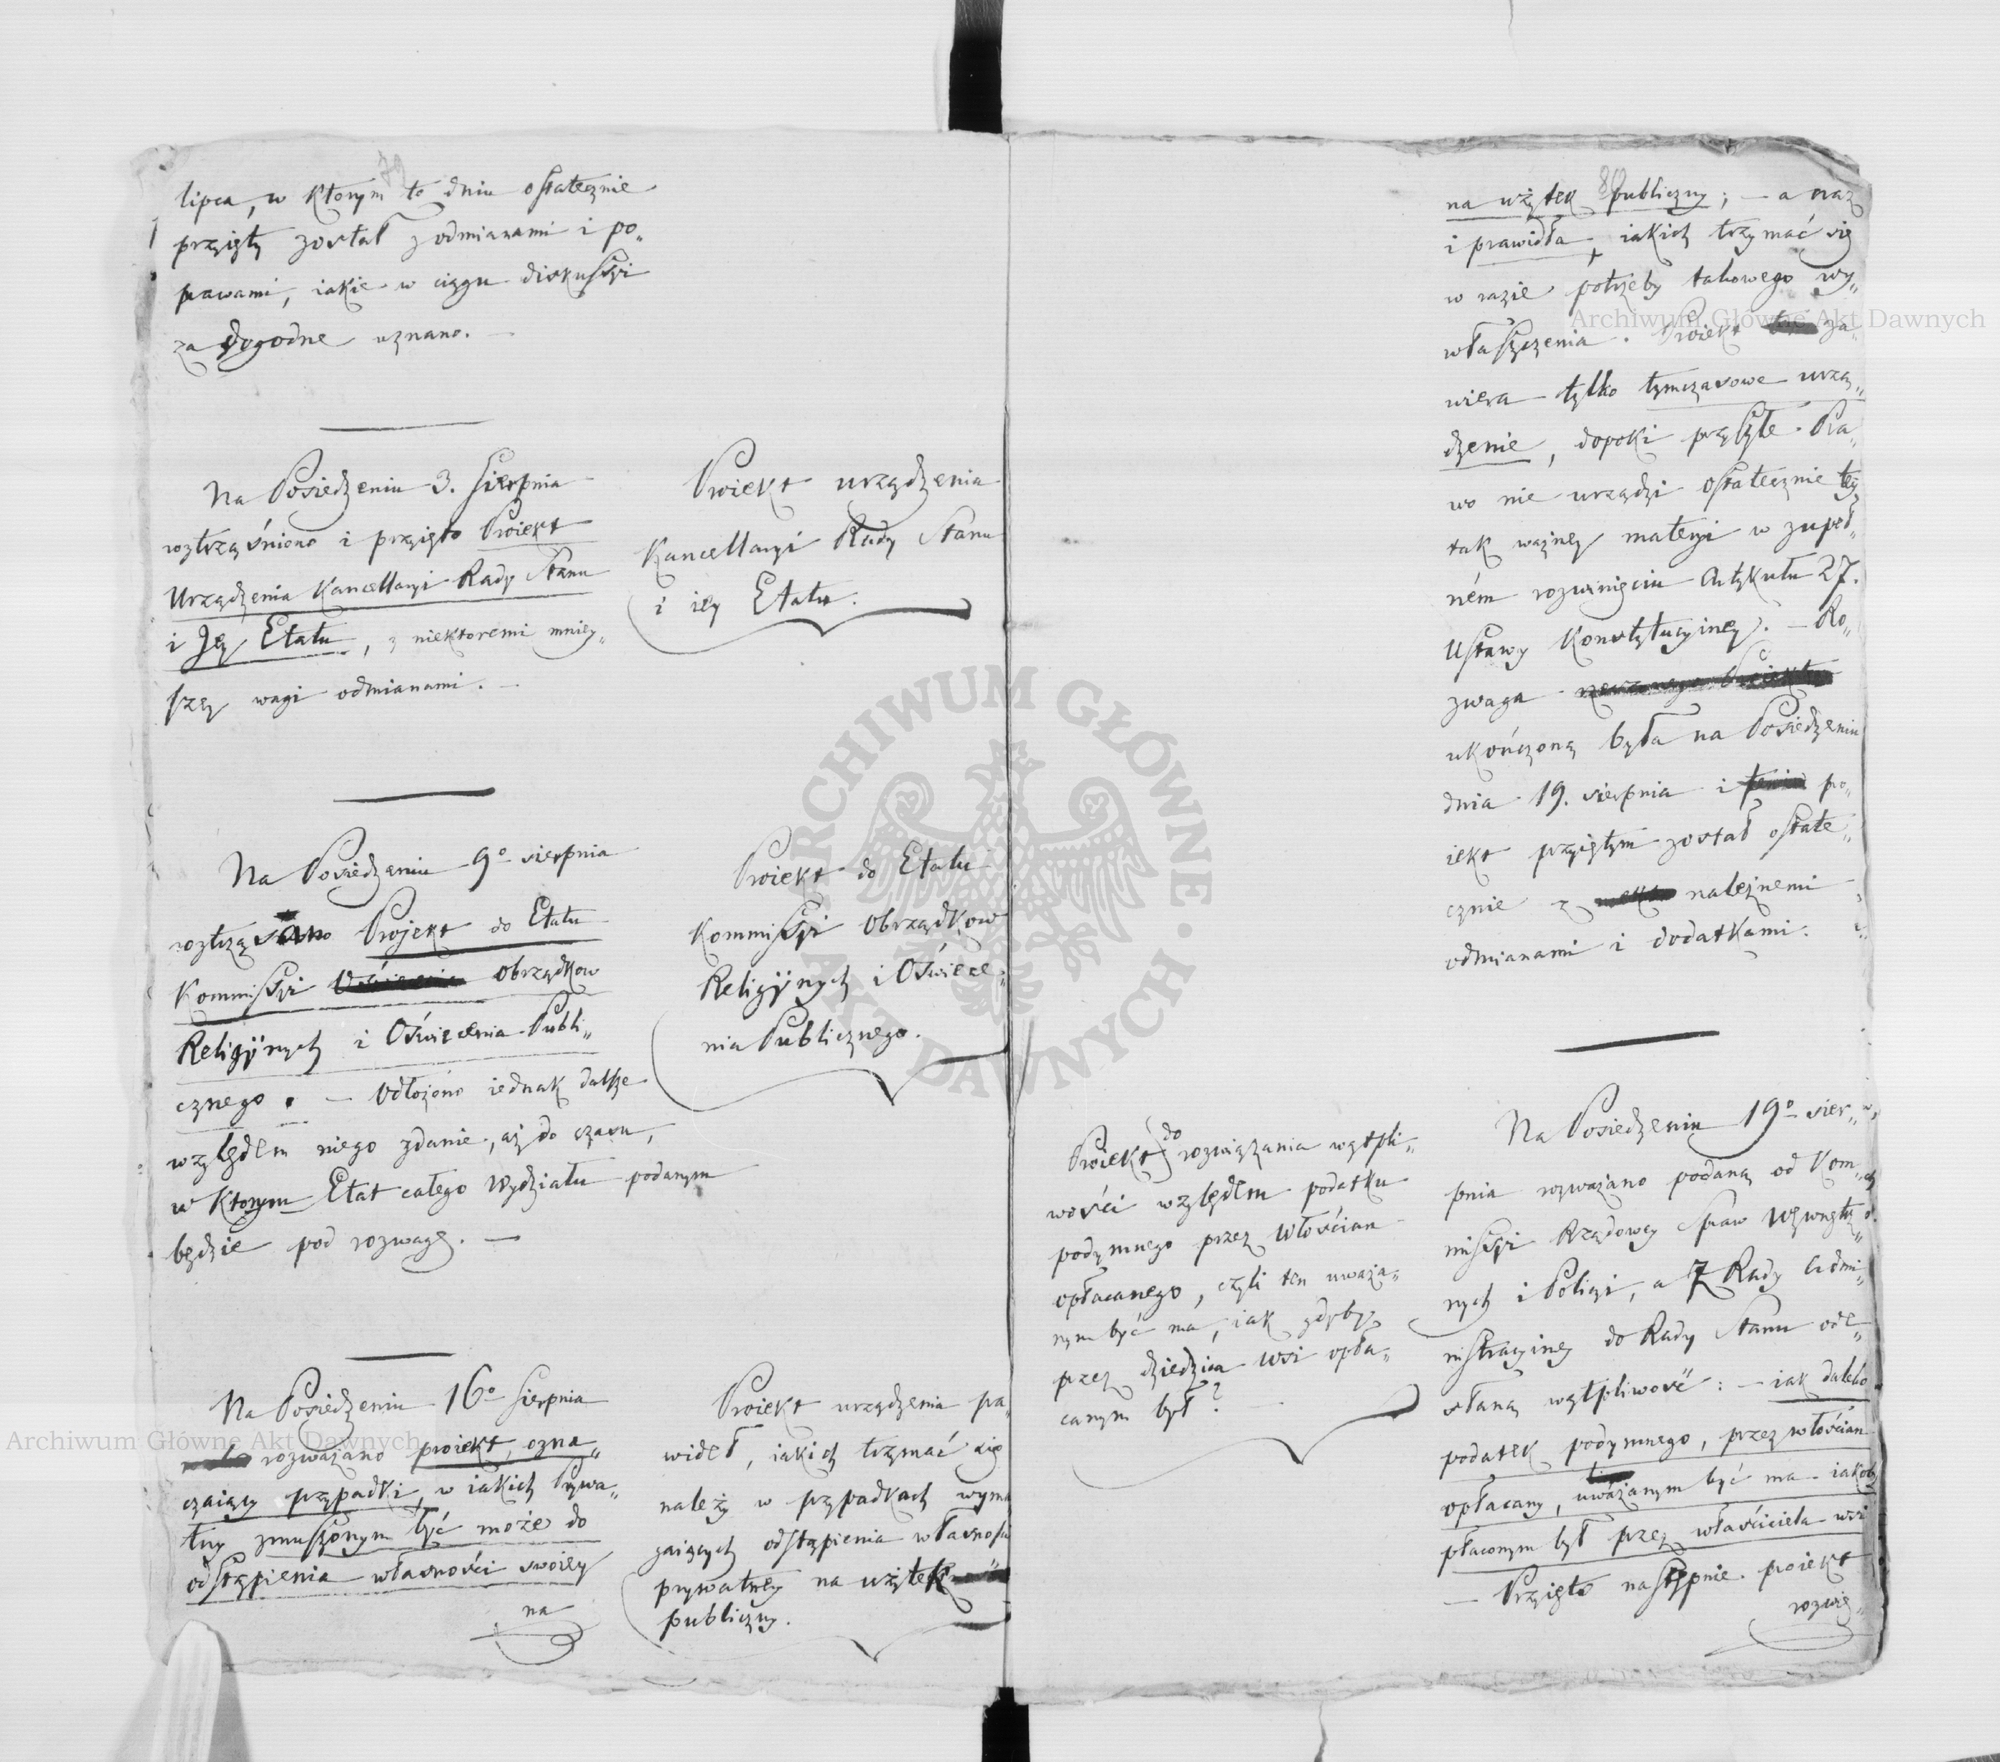 79
lipca, w ktorym to dniu ostatecznie
przyięty został z odmianami i po„
prawami, iakie w ciągu diskussyi
za dogodne uznano. —
Na Posiedzeniu 3. Sierpnia
roztrząśniono i przyięto Proiekt
Urządzenia Kancellaryi Rady Stanu
i Jey Etatu, z niektoremi mniey„
szey wagi odmianami. —
Proiekt urządzenia
Kancellaryi Rady Stanu
i iey Etatu.
Na Posiedzeniu 9o sierpnia
roztrząsano Projekt do Etatu
Kommissyi Obrządkow
Religiynych i Oświecenia Publi„
cznego. — Odłożono iednak dalsze
względem niego zdanie, aż do czasu,
w ktorym Etat całego Wydziału podanym
będzie pod rozwagę. —
Proiekt do Etatu
Kommissyi Obrządkow
Religiynych i Oświece„
nia Publicznego.
Na Posiedzeniu 16o Sierpnia
rozważano proiekt, ozna„
czaiący przypadki, w iakich Prywa„
tny zmuszonym być może do
odstąpienia własności swoiey
na
Proiekt urządzenia pra„
wideł, iakich trzymać się
należy w przypadkach wyma
gaiących odstąpienia własności
prywatney na użytek
publiczny.
80
na użytek publiczny; — a oraz
i prawidła, iakich trzymać się
w razie potrzeby takowego wy„
właszczenia. Proiekt za„
wiera tylko tymczasowe urzą„
dzenie, dopoki przyszłe Pra„
wo nie urządzi ostatecznie tey
tak ważney materyi w zupeł„
ném rozwinięciu Artykułu 27.
Ustawy Konstytucyiney. — Ro„
zwaga
ukończoną była na Posiedzeniu
dnia 19. sierpnia i pro„
iekt przyiętym został ostate„
cznie z należnemi
odmianami i dodatkami.
Proiekt do rozwiązania wątpli„
wości względem podatku
podymnego przez Włościan
opłacanego, czyli ten uważa„
nym być ma, iak gdyby
przez dziedzica wsi opła„
canym był? —
Na Posiedzeniu 19o sier„
pnia rozważano podaną od Kom„
missyi Rządowey Spraw Wewnętrz„
nych i Policyi, a z Rady Admi„
nistracyiney do Rady Stanu ode„
słaną wątpliwość: — iak daleko
podatek podymnego, przez włościan
opłacany, uważanym być ma iakoby
płaconym był przez właściciela wsi
— Przyięto następnie proiekt
rozwią„
Archiwum Główne Akt Dawnych
Archiwum Główne Akt Dawnych
ARCHIWUM GŁÓWNE · AKT DAWNYCH ·